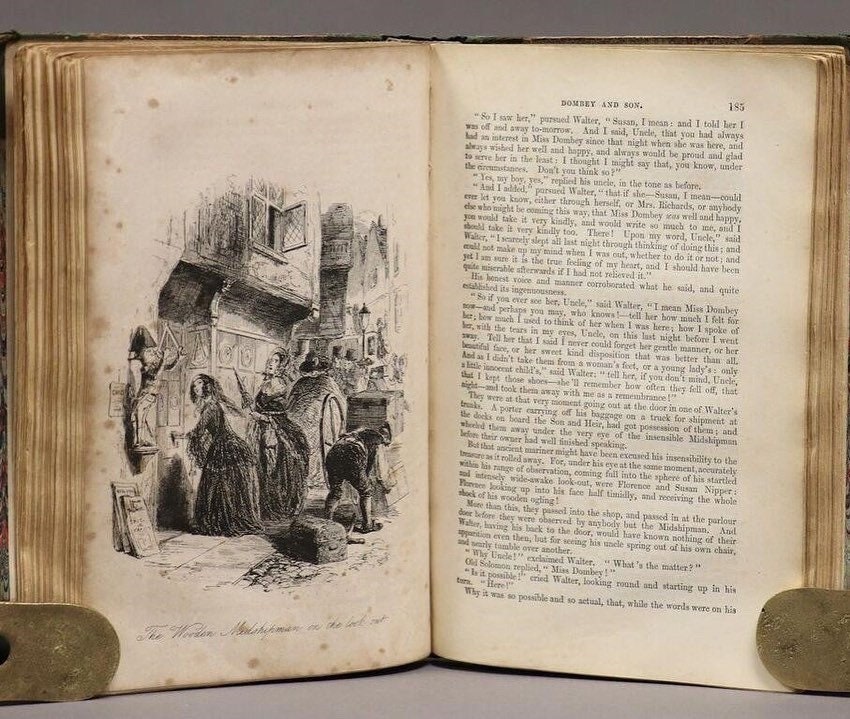 The Wooden Midshipman on the look out
DOMBEY AND SON. 185
"So I saw her," pursued Walter, "Susan, I mean: and I told her I
was off and away to-morrow. And I said, Uncle, that you had always
had an interest in Miss Dombey since that night when she was here, and
always wished her well and happy, and always would be proud and glad
to serve her in the least: I thought I might say that, you know, under
the circumstances. Don't you think so?"
"Yes, my boy, yes," replied his uncle, in the tone as before.
"And I added," pursued Walter, "that if she—Susan, I mean—could
ever let you know, either through herself, or Mrs. Richards, or anybody
else who might be coming this way, that Miss Dombey was well and happy,
you would take it very kindly, and would write so much to me, and I
should take it very kindly too. There! Upon my word, Uncle," said
Walter, "I scarcely slept all last night through thinking of doing this; and
could not make up my mind when I was out, whether to do it or not; and
yet I am sure it is the true feeling of my heart, and I should have been
quite miserable afterwards if I had not relieved it."
His honest voice and manner corroborated what he said, and quite
established its ingenuousness.
"So if you ever see her, Uncle," said Walter, "I mean Miss Dombey
now—and perhaps you may, who knows!—tell her how much I felt for
her; how much I used to think of her when I was here; how I spoke of
her, with the tears in my eyes, Uncle, on this last night before I went
away. Tell her that I said I never could forget her gentle manner, or her
beautiful face, or her sweet kind disposition that was better than all.
And as I didn't take them from a woman's feet, or a young lady's: only
a little innocent child's," said Walter: "tell her, if you don't mind, Uncle,
that I kept those shoes—she'll remember how often they fell off, that
night—and took them away with me as a remembrance!"
They were at that very moment going out at the door in one of Walter's
trunks. A porter carrying off his baggage on a truck for shipment at
the docks on board the Son and Heir, had got possession of them; and
wheeled them away under the very eye of the insensible Midshipman
before their owner had well finished speaking.
But that ancient mariner might have been excused his insensibility to the
treasure as it rolled away. For, under his eye at the same moment, accurately
within his range of observation, coming full into the sphere of his startled
and intensely wide-awake look-out, were Florence and Susan Nipper:
Florence looking up into his face half timidly, and receiving the whole
shock of his wooden ogling!
More than this, they passed into the shop, and passed in at the parlour
door before they were observed by anybody but the Midshipman. And
Walter, having his back to the door, would have known nothing of their
apparition even then, but for seeing his uncle spring out of his own chair,
and nearly tumble over another.
"Why Uncle!" exclaimed Walter. "What's the matter?"
Old Solomon replied, "Miss Dombey!"
"Is it possible!" cried Walter, looking round and starting up in his
turn. "Here!"
Why it was so possible and so actual, that, while the words were on his